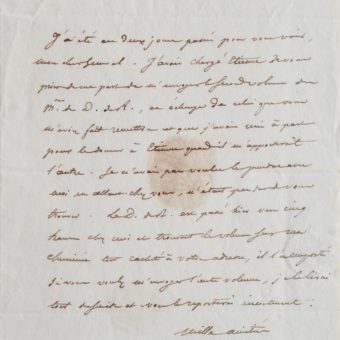 J'ai été ces deux jours passés pour vous voir,
mon cher General. J'avais chargé Etienne de vous
prier de ma part de m'envoyer le second volume du
M. de D. de R., en échange de celui que vous
m'aviez fait remettre et que j'avais mis à part
pour le donner à Etienne quand il m'apporterait
l'autre. Je n'avais pas voulu le prendre avec
moi en allant chez vous, n'étant pas sur de vous
trouver. Le D. de R. est passé hier vers cinq
heures chez moi et trouvant le volume sur ma
cheminée tout cacheté à votre adresse, il l'a emporté
si vous voulez m'envoyer l'autre volume, je le lirai
tout de suite et vous le reporterai incessament.
mille amitiés